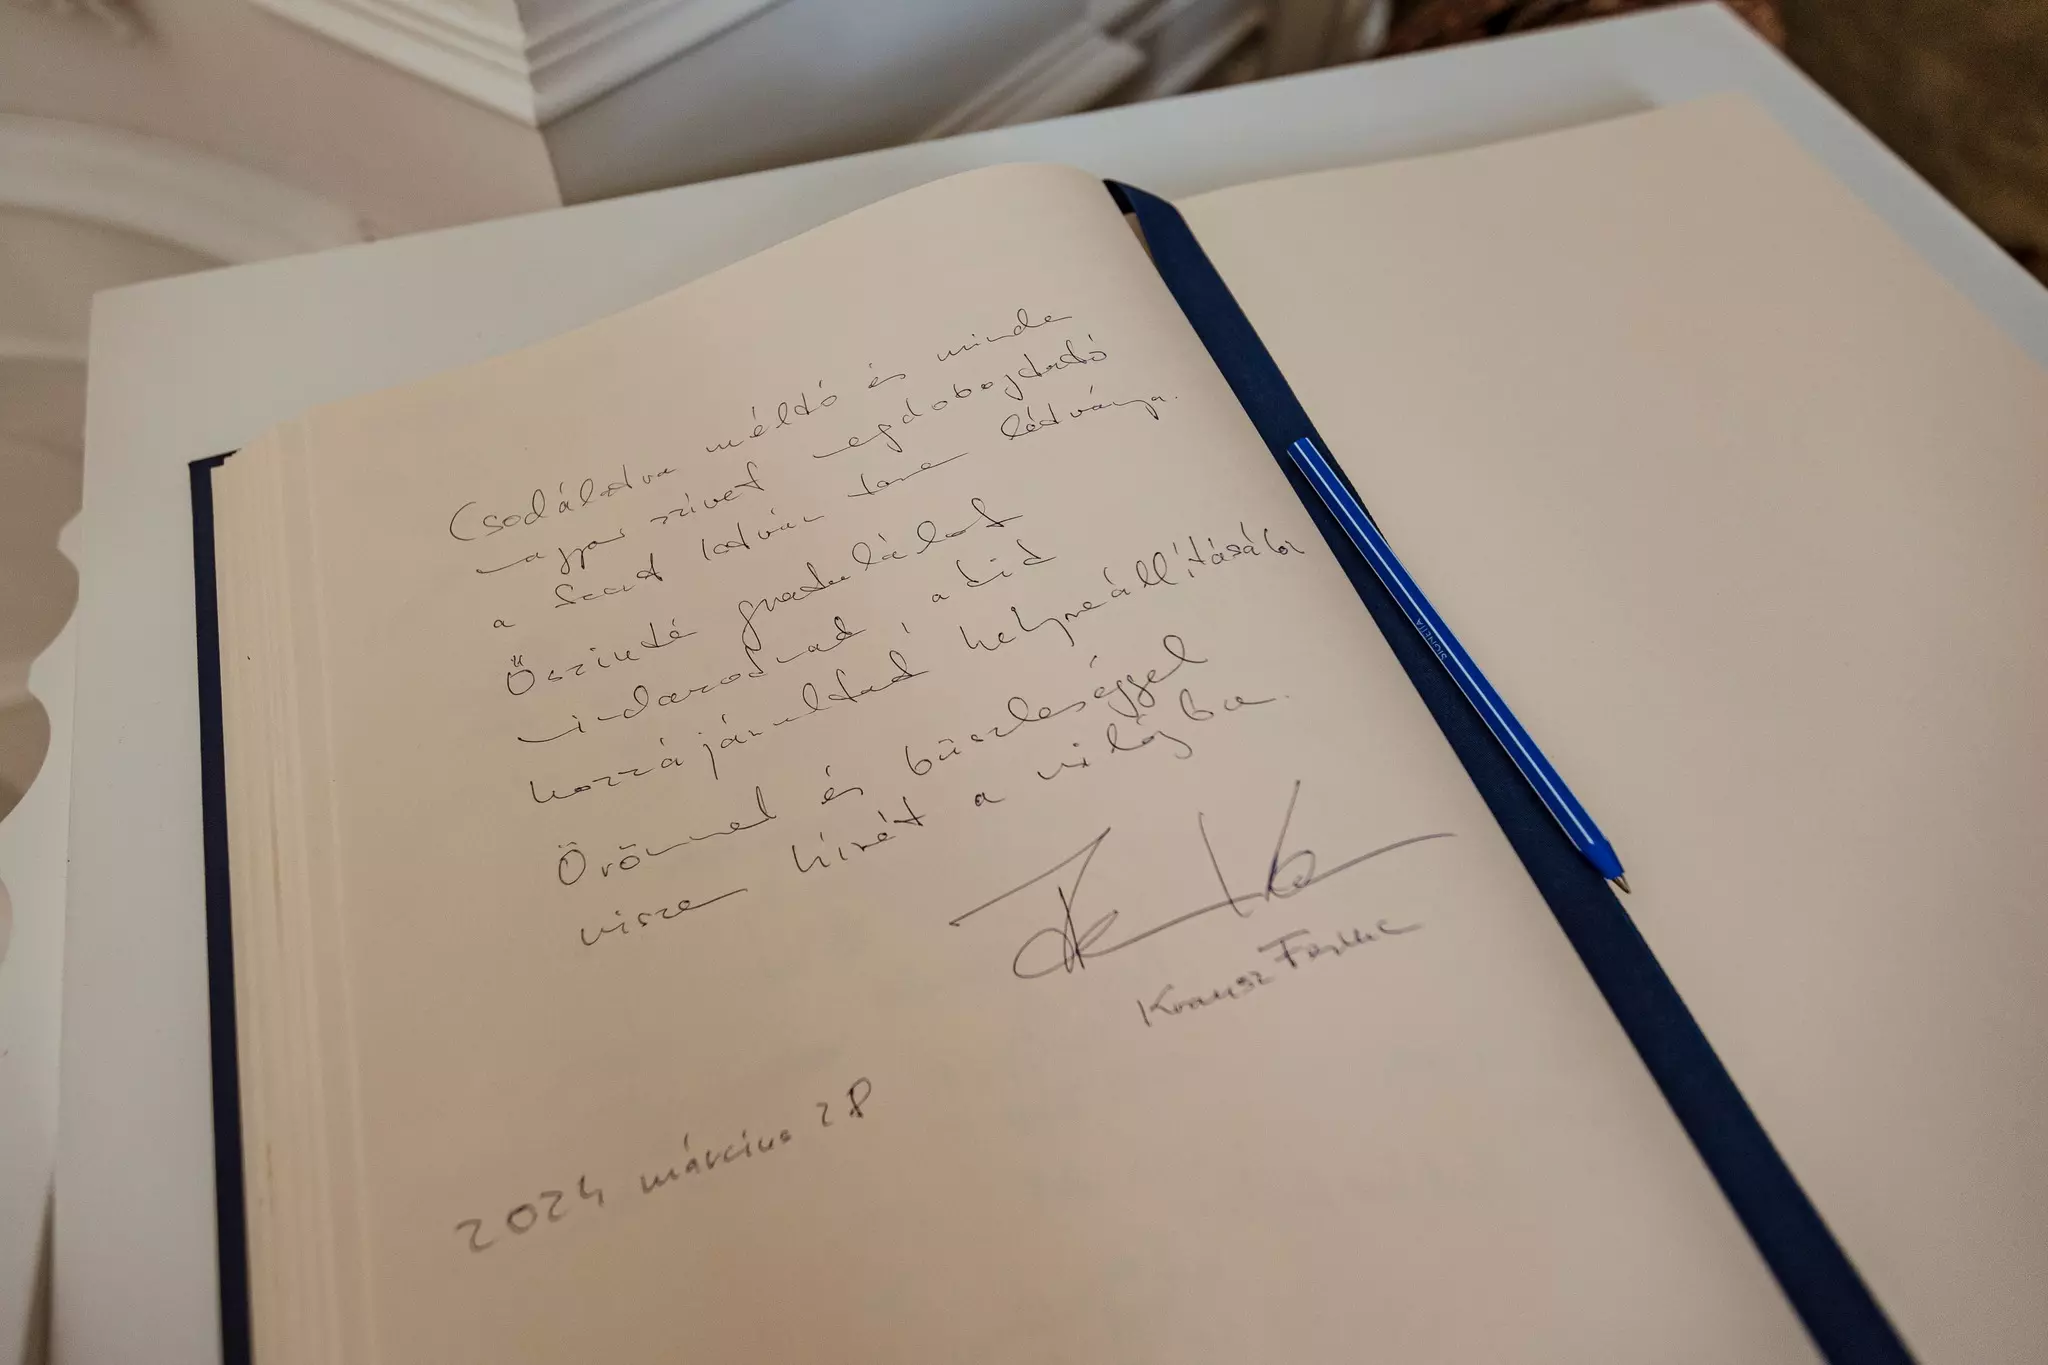 Csodálatra méltó és minden
magyar szívet megdobogtató
a Szent István terem látványa.
Őszinte gratulálok
mindazoknak, akik
hozzájárultak helyreállításához
Örömmel és büszkeséggel
viszem hírét a világba.
Krausz Ferenc
2024 március 28
SIGNETTA